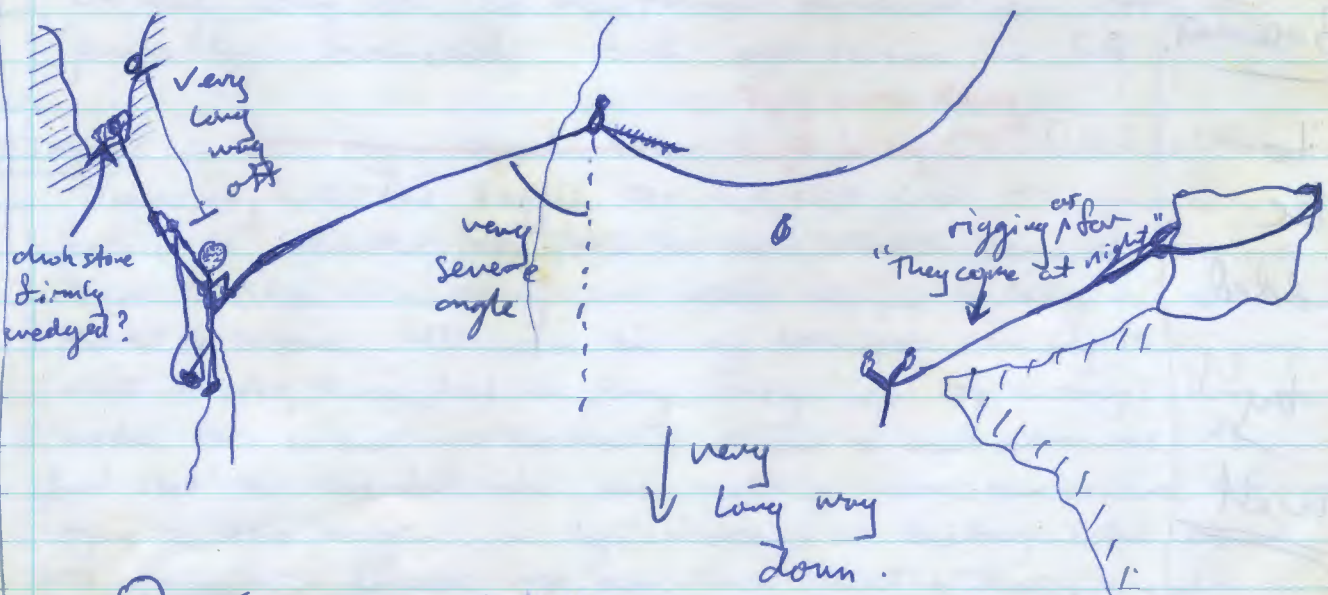 Very
long
way
off
chokstone
firmly
wedged?
very
severe
angle
rigging as for
"They come at night"
very
long way
down.